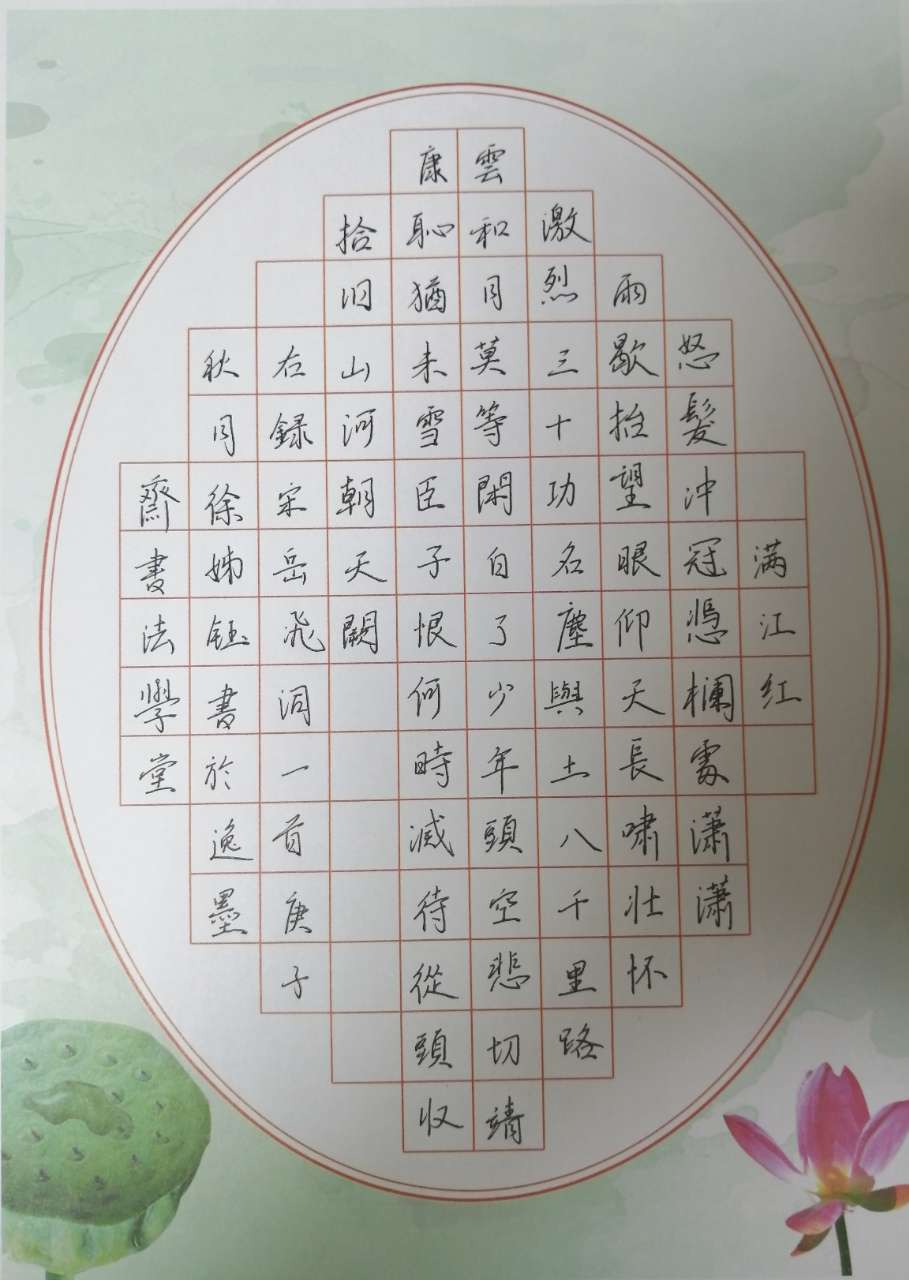 满江红
怒髮冲冠憑欄處潇潇
雨歇抬望眼仰天長啸壮怀
激烈三十功名塵與土八千里路
雲和月莫等閑白了少年頭空悲切靖
康恥猶未雪臣子恨何時减待從頭收
拾旧山河朝天闕
右録宋岳飛词一首庚子
秋月徐姊钰書於逸墨
齋書法學堂